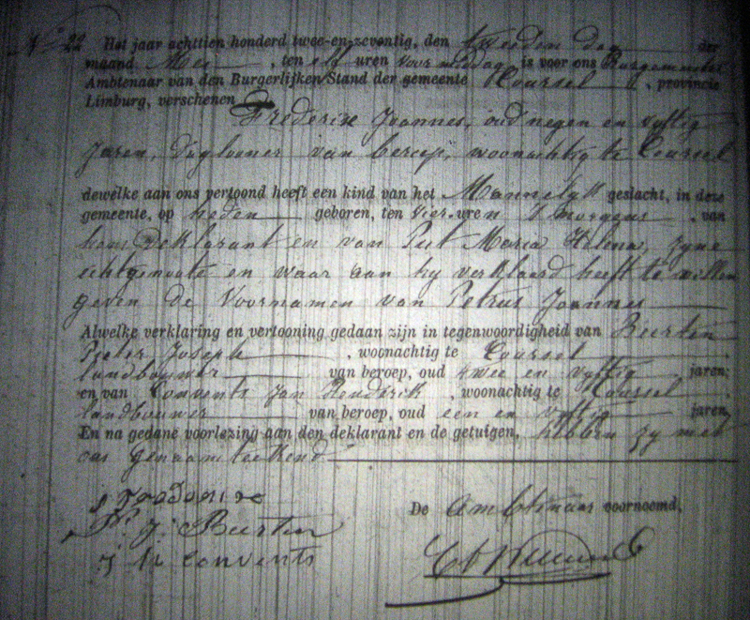 N° 22 Het jaar achttien honderd twee-en-zeventig, den tweeden dag der
maand Mei, ten elf uren voormiddag is voor ons Burgemeester
Ambtenaar van den Burgerlijken Stand der gemeente Coursel, provincie
Limburg, verschenen
Frederix Joannes, oud negen en vyftig
jaren, daglooner van beroep, woonachtig te Coursel
dewelke aan ons vertoond heeft een kind van het Mannelyk geslacht, in deze
gemeente, op heden geboren, ten vier uren 's morgens, van
hem deklarant en van Put Maria Helena, zyne
echtgenoote en waar aan hy verklaard heeft te willen
geven de Voornamen van Petrus Joannes
Alwelke verklaring en vertooning gedaan zijn in tegenwoordigheid van Burtin
Pieter Joseph, woonachtig te Coursel
landbouwer van beroep, oud twee en vyftig jaren;
en van Convents Jan Hendrik, woonachtig te Coursel
landbouwer van beroep, oud een en vyftig jaren,
En na gedane voorlezing aan den deklarant en de getuigen, hebben zy met
ons genaamteekend
De Ambtenaar voornoemd,
P. J. Burtin
j h convents